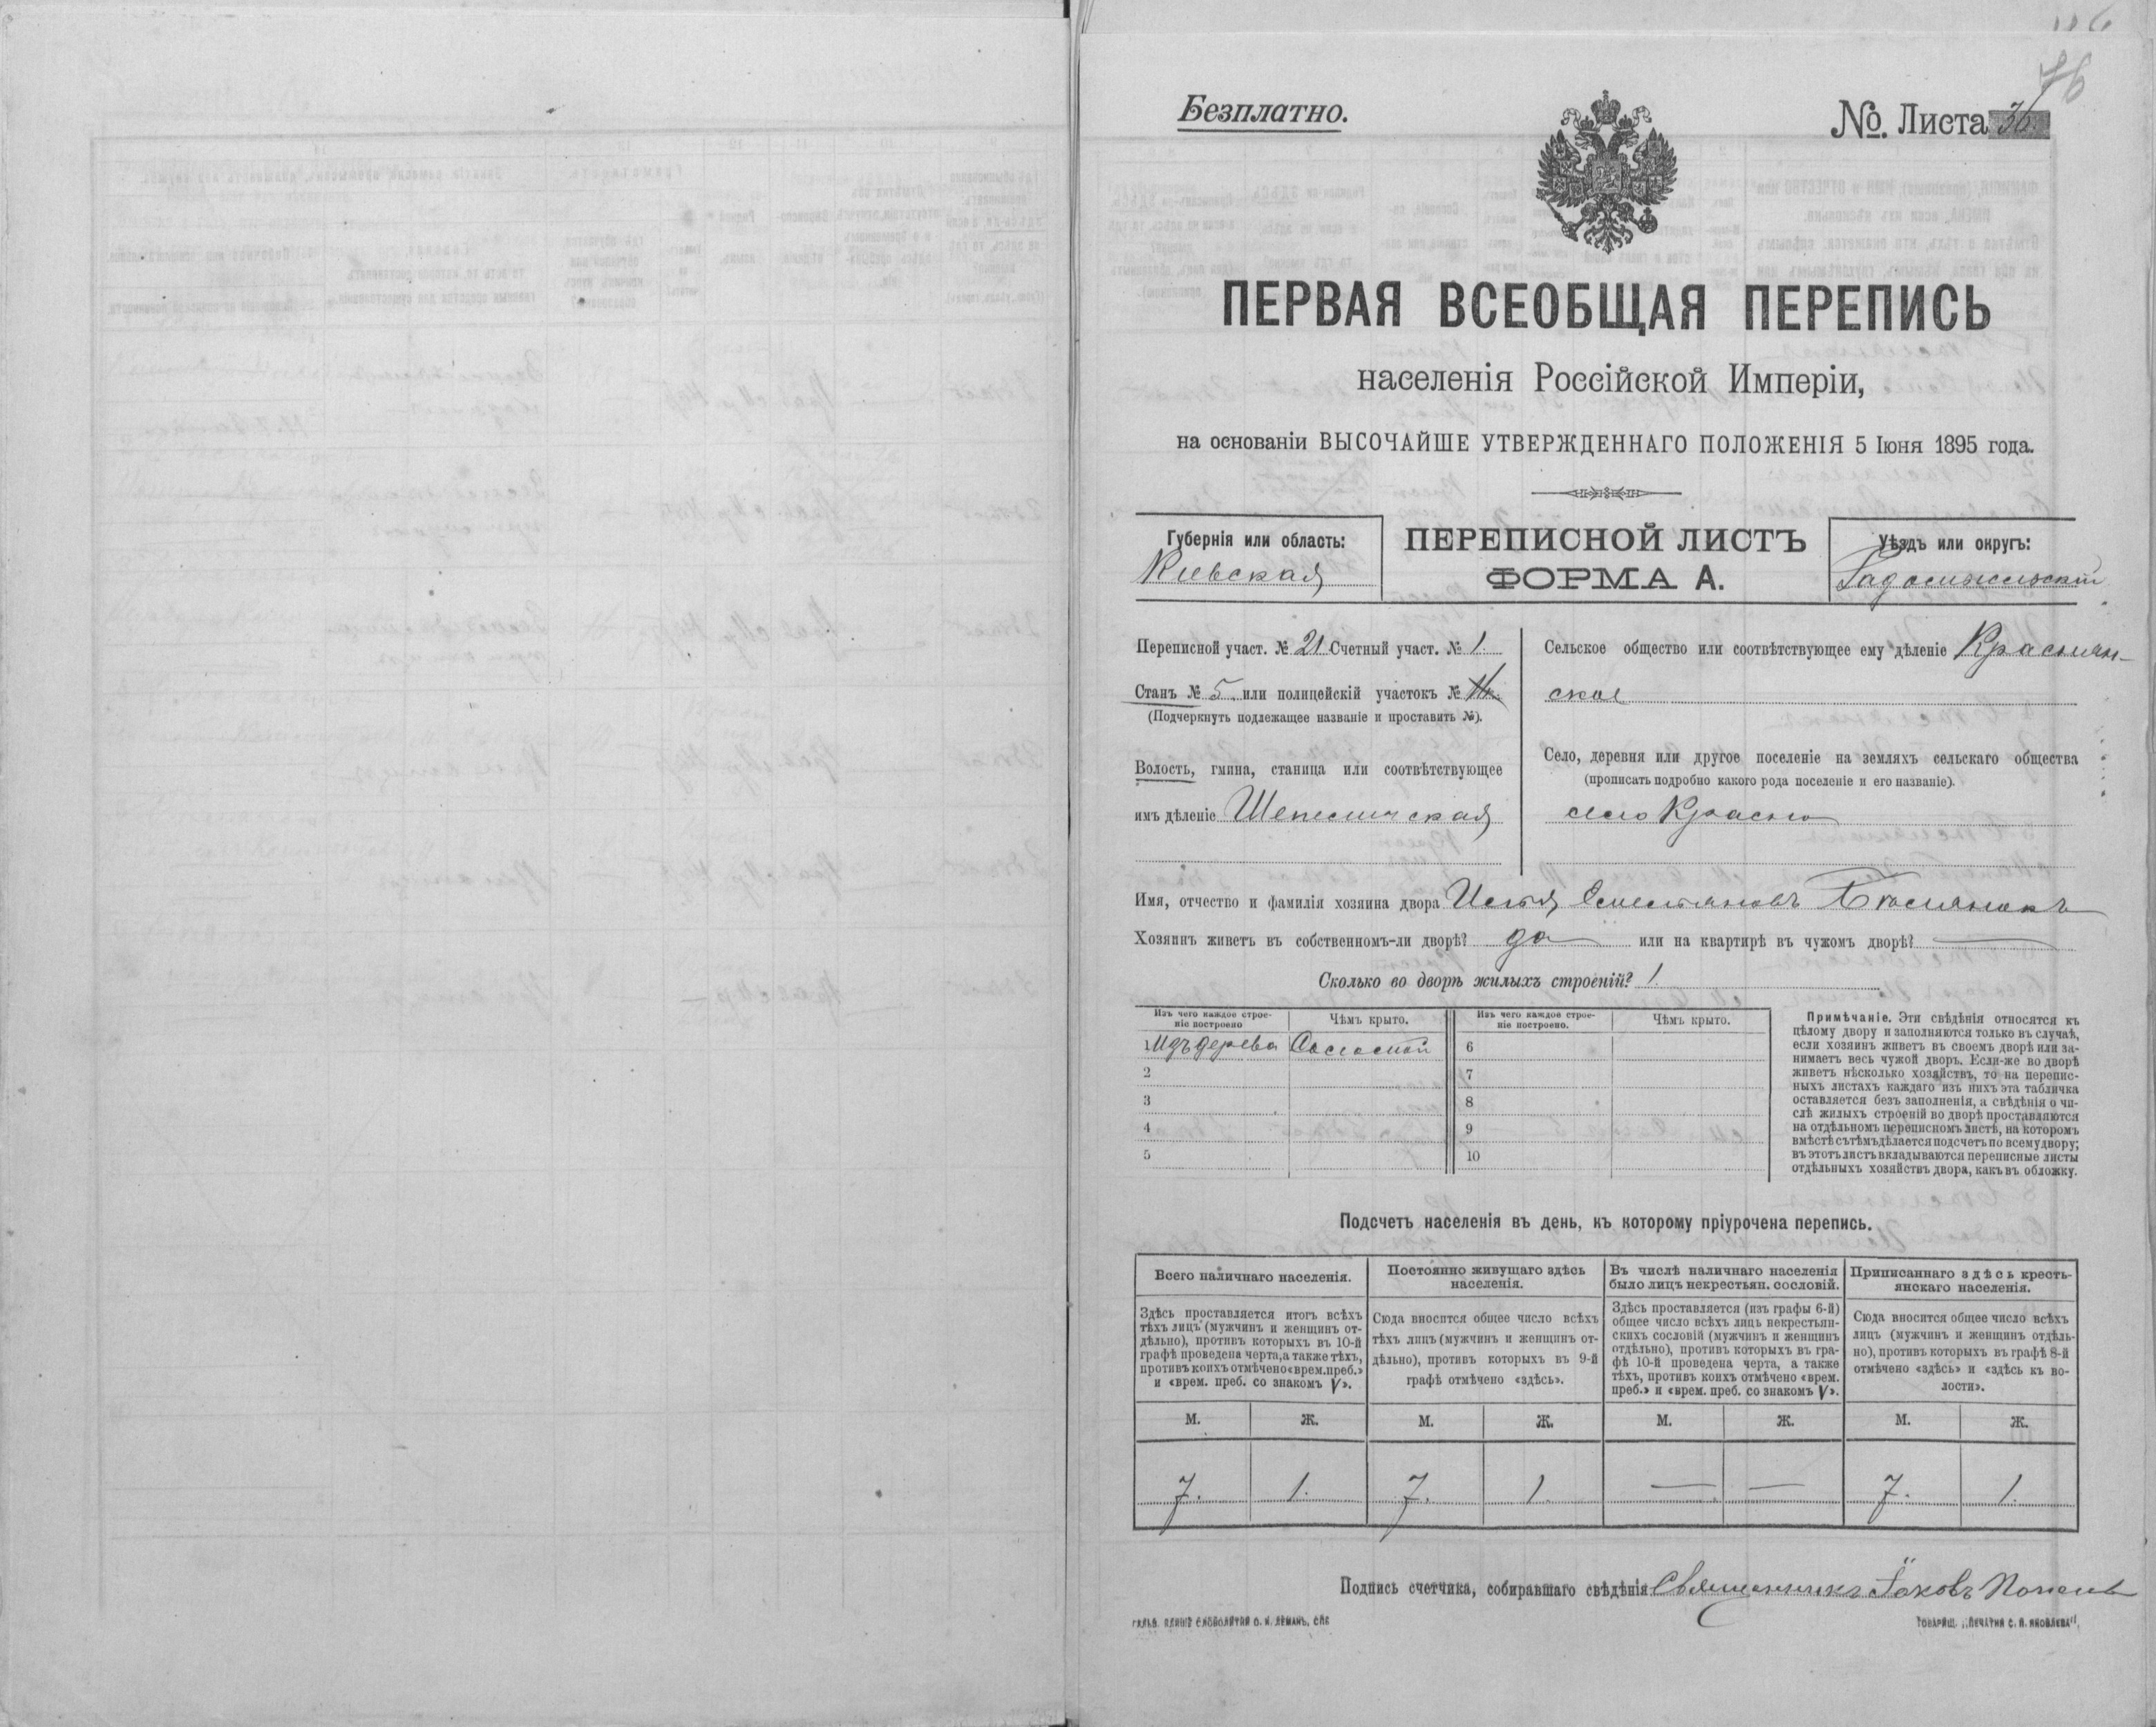 76
Безплатно.
№ Листа 36
ПЕРВАЯ ВСЕОБЩАЯ ПЕРЕПИСЬ
населенія Россійской Имперіи,
на основаніи ВЫСОЧАЙШЕ УТВЕРЖДЕННАГО ПОЛОЖЕНІЯ 5 Іюня 1895 года.
Губернія или область:
Кіевская
ПЕРЕПИСНОЙ ЛИСТЪ
ФОРМА А.
Уѣздъ или округъ:
Радомысльскій
Переписной участ. № 21 Счетный участ. № 1.
Станъ № 5. или полицейскій участокъ №
(Подчеркнуть подлежащее названіе и проставить №).
Волость, гмина, станица или соотвѣтствующее
имъ дѣленіе Шепеличская
Сельское общество или соотвѣтствующее ему дѣленіе Краснян-
ское
Село, деревня или другое поселеніе на земляхъ сельскаго общества
(прописать подробно какого рода поселеніе и его названіе).
село Красно
Имя, отчество и фамилія хозяина двора Илья
Хозяинъ живетъ въ собственномъ-ли дворѣ? да или на квартирѣ въ чужомъ дворѣ? —
Сколько во дворѣ жилыхъ строеній? 1.
Изъ чего каждое строе-
ніе построено
Чѣмъ крыто.
Изъ чего каждое строе-
ніе построено.
Чѣмъ крыто.
1 Изъ дерева Соломой 6
2 7
3 8
4 9
5 10
Примѣчаніе. Эти свѣдѣнія относятся къ
цѣлому двору и заполняются только въ случаѣ,
если хозяинъ живетъ въ своемъ дворѣ или за-
нимаетъ весь чужой дворъ. Если-же во дворѣ
живетъ нѣсколько хозяйствъ, то на перепис-
ныхъ листахъ каждаго изъ нихъ эта табличка
оставляется безъ заполненія, а свѣдѣнія о чи-
слѣ жилыхъ строеній во дворѣ проставляются
на отдѣльномъ переписномъ листѣ, на которомъ
вмѣстѣ съ тѣмъ дѣлается подсчетъ по всему двору;
въ этотъ листъ вкладываются переписные листы
отдѣльныхъ хозяйствъ двора, какъ въ обложку.
Подсчетъ населенія въ день, къ которому пріурочена перепись.
Всего наличнаго населенія.
Здѣсь проставляется итогъ всѣхъ
тѣхъ лицъ (мужчинъ и женщинъ от-
дѣльно), противъ которыхъ въ 10-й
графѣ проведена черта, а также тѣхъ,
противъ коихъ отмѣчено «врем. преб.»
и «врем. преб. со знакомъ V».
Постоянно живущаго здѣсь
населенія.
Сюда вносится общее число всѣхъ
тѣхъ лицъ (мужчинъ и женщинъ от-
дѣльно), противъ которыхъ въ 9-й
графѣ отмѣчено «здѣсь».
Въ числѣ наличнаго населенія
было лицъ некрестьян. сословій.
Здѣсь проставляется (изъ графы 6-й)
общее число всѣхъ лицъ некрестьян-
скихъ сословій (мужчинъ и женщинъ
отдѣльно), противъ которыхъ въ гра-
фѣ 10-й проведена черта, а также
тѣхъ, противъ коихъ отмѣчено «врем.
преб.» и «врем. преб. со знакомъ V».
Приписаннаго здѣсь кресть-
янскаго населенія.
Сюда вносится общее число всѣхъ
лицъ (мужчинъ и женщинъ отдѣль-
но), противъ которыхъ въ графѣ 8-й
отмѣчено «здѣсь» и «здѣсь къ во-
лости».
М. Ж. М. Ж. М. Ж. М. Ж.
7. 1. 7. 1. — — 7. 1.
Подпись счетчика, собиравшаго свѣдѣнія Священникъ Іаковъ
ТОВАРИЩ. „ПЕЧАТНЯ С. П. ЯКОВЛЕВА“.